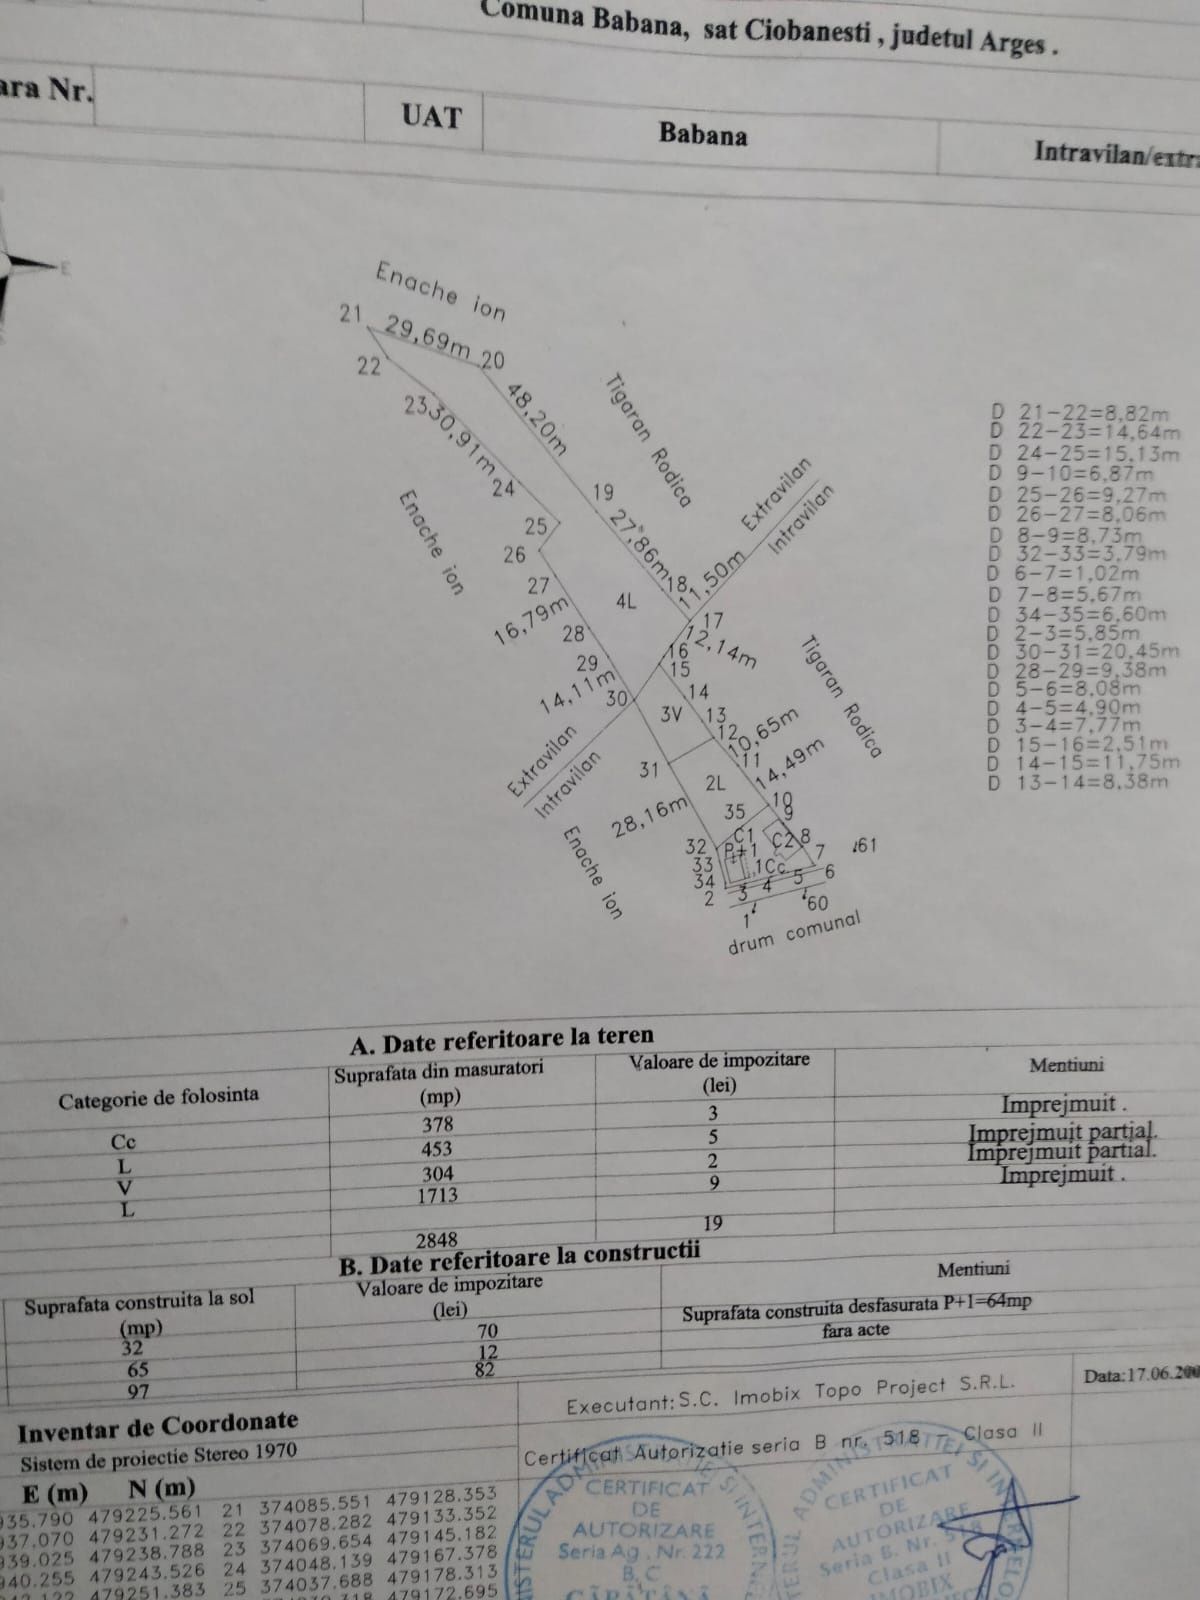 Comuna Babana, sat Ciobanesti , judetul Arges .
ara Nr.
UAT
Babana
Intravilan/extra
E
Enache ion
21
29,69m
20
22
48,20m
Tigaran Rodica
23
30,91m
24
19
Extravilan
Intravilan
25
27,86m
26
Enache ion
27
18
11,50m
4L
16,79m
28
17
12,14m
16
29
15
14,11m
30
14
Tigaran Rodica
3V
13
12
10,65m
Extravilan
Intravilan
11
31
14,49m
2L
10
28,16m
35
9
C1
P+1
C2
8
32
7
61
33
1Cc
34
6
5
4
3
2
60
1
Enache ion
drum comunal
D 21-22=8,82m
D 22-23=14,64m
D 24-25=15,13m
D 9-10=6,87m
D 25-26=9,27m
D 26-27=8,06m
D 8-9=8,73m
D 32-33=3,79m
D 6-7=1,02m
D 7-8=5,67m
D 34-35=6,60m
D 2-3=5,85m
D 30-31=20,45m
D 28-29=9,38m
D 5-6=8,08m
D 4-5=4,90m
D 3-4=7,77m
D 15-16=2,51m
D 14-15=11,75m
D 13-14=8,38m
A. Date referitoare la teren
Categorie de folosinta
Suprafata din masuratori
(mp)
Valoare de impozitare
(lei)
Mentiuni
Cc 378 3 Imprejmuit .
L 453 5 Imprejmuit partial.
V 304 2 Imprejmuit partial.
L 1713 9 Imprejmuit .
2848 19
B. Date referitoare la constructii
Suprafata construita la sol
(mp)
Valoare de impozitare
(lei)
Mentiuni
32 70 Suprafata construita desfasurata P+1=64mp
65 12 fara acte
97 82
Inventar de Coordonate
Sistem de proiectie Stereo 1970
E (m) N (m)
935.790 479225.561 21 374085.551 479128.353
937.070 479231.272 22 374078.282 479133.352
939.025 479238.788 23 374069.654 479145.182
940.255 479243.526 24 374048.139 479167.378
479251.383 25 374037.688 479178.313
479172.695
Executant: S.C. Imobix Topo Project S.R.L.
Data:17.06.200
Certificat Autorizatie seria B nr. 518 - Clasa II
CERTIFICAT
DE
AUTORIZARE
Seria Ag . Nr. 222
B. C
CĂPĂȚÂNĂ
CERTIFICAT
DE
AUTORIZARE
Seria B. Nr. 518
Clasa II
IMOBIX